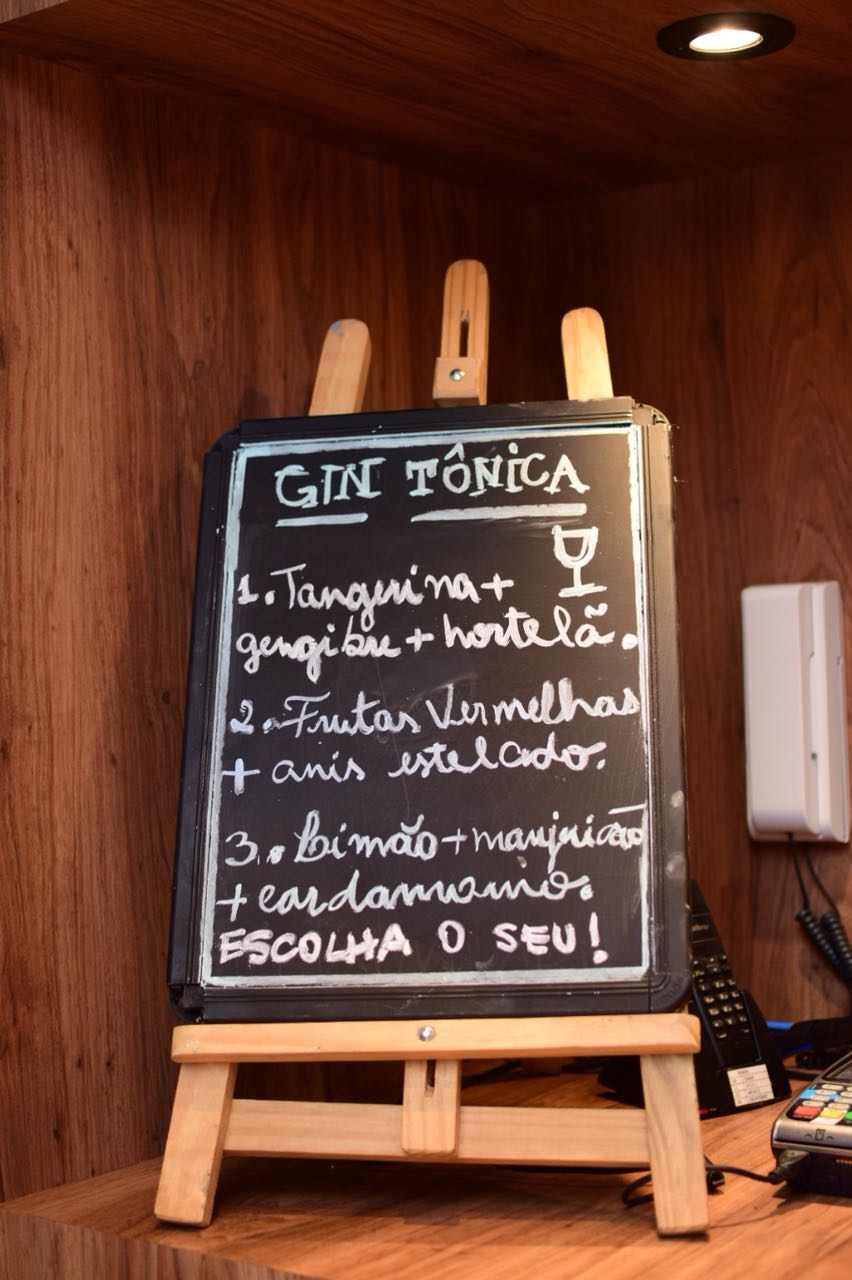 GIN TÔNICA
1. Tangerina +
gengibre + hortelã.
2. Frutas Vermelhas
+ anis estelado.
3. Limão + manjricão
+ cardamomo.
ESCOLHA O SEU!